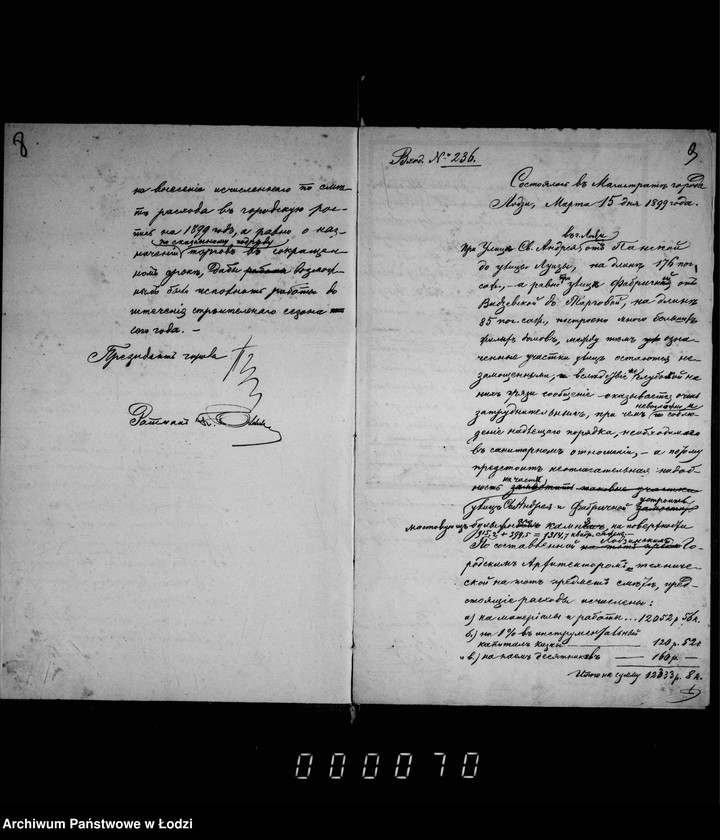 8
на внесение исчисленного по сме-
те расхода въ городскую рос-
пись на 1899 годъ, а равно о наз-
по сказанному подряду
наченіи торговъ въ сокращен-
номъ срокѣ, дабы работа возмож-
но было исполнить работы въ
теченіи строительнаго сезона
сего года. —
Президентъ города
Ратманъ
Вход. № 236.
9
Состоялось въ Магистратѣ города
Лодзи, Марта 15 дня 1899 года.
въ г. Лодзи
При Улицѣ Св. Андрея отъ Панской
до улицы Луизы, на длинѣ 176 пог.
саж., — а равно при улицѣ Фабричной отъ
Видзевской до Торговой, на длинѣ
85 пог. саж., построено много
домовъ, между тѣмъ озна-
ченные участки улицъ остаются не-
замощенными, вслѣдствіе глубокой на
нихъ грязи сообщеніе оказывается очень
затруднительнымъ, при чемъ невозможно и соблю-
деніе надлежащаго порядка, необходимаго
въ санитарномъ отношеніи, — а потому
предстоитъ неотлагательная надоб-
ность на части замостить таковые участки
улицъ Св. Андрея и Фабричной устроить
мостовую камнемъ, на поверхности
915,2 + 399,5 = 1314,7 квадр. сажень. —
По составленной Лодзинскимъ Го-
родскимъ Архитекторомъ техниче-
ской на тотъ предметъ смѣтѣ, пред-
стоящіе расходы исчислены:
а) на матеріалы и работы ... 12052 р. 56 к.
б) на 1% въ инструментальный
капиталъ казны — 120 р. 52 к.
и в) на наемъ десятниковъ — 160 р. —
Итого на сумму 12333 р. 8 к.
000070
Archiwum Państwowe w Łodzi